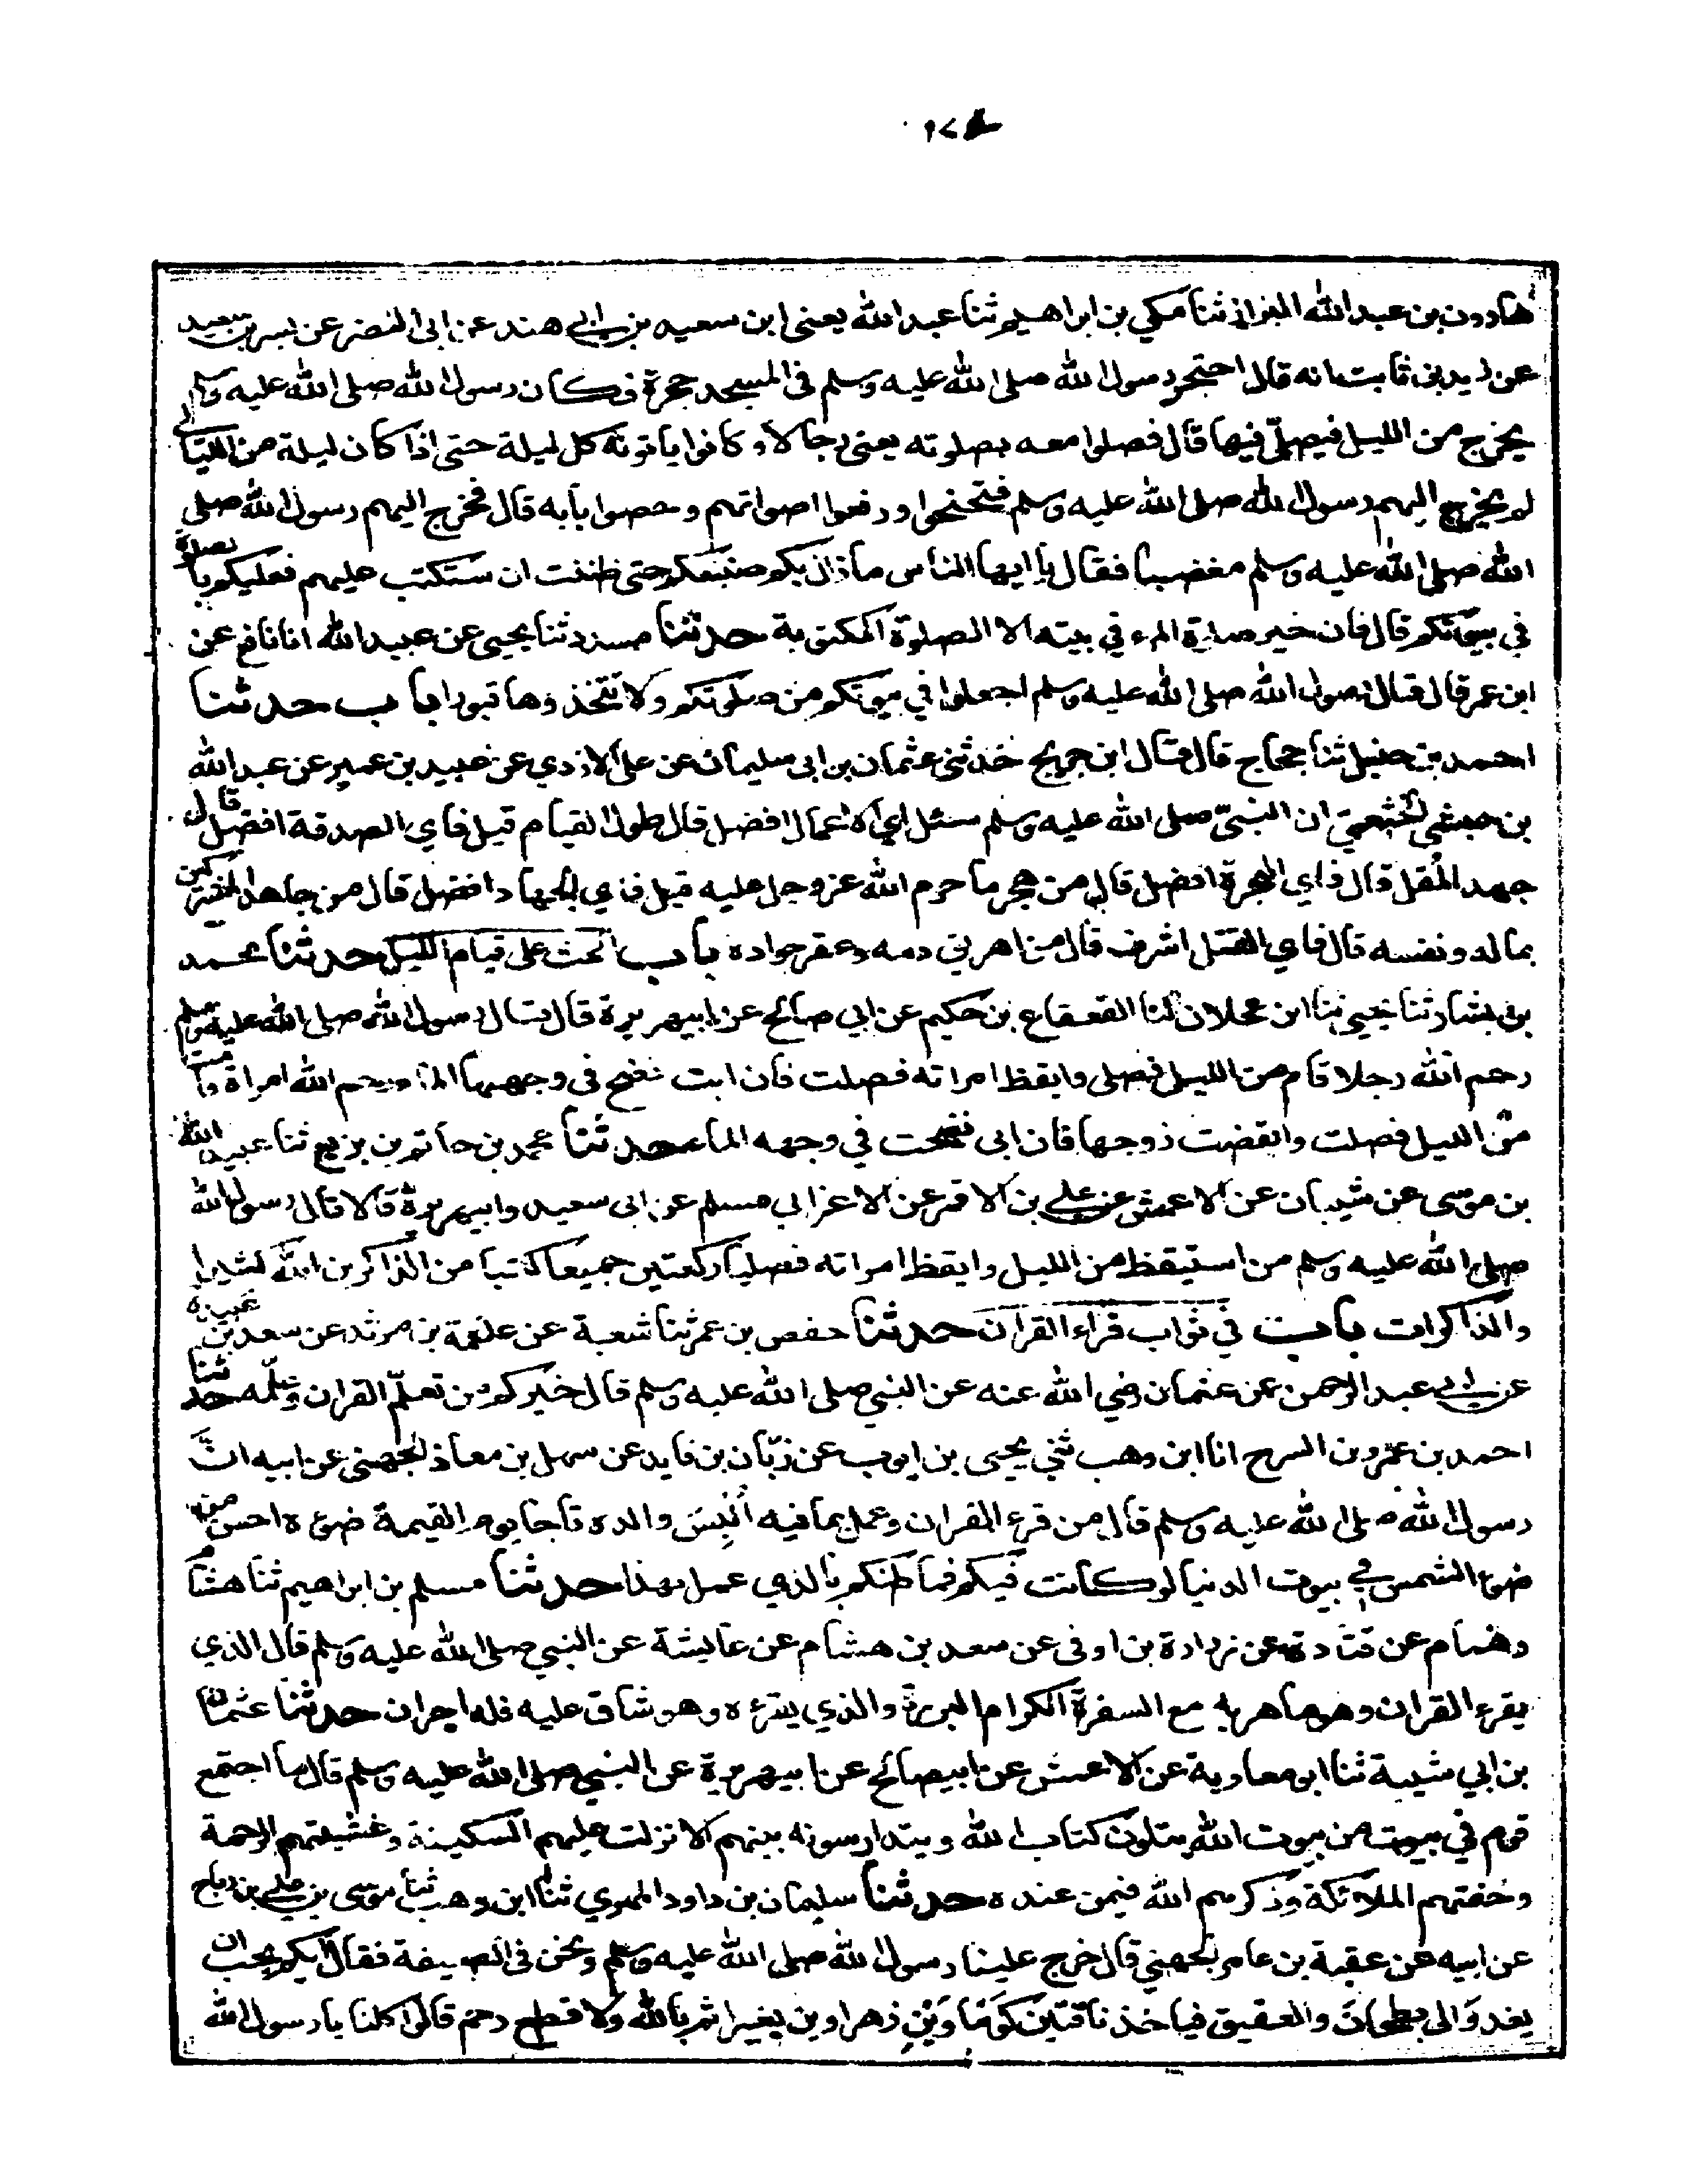 هارون بن عبد الله البزاز ثنا مكي بن ابراهيم ثنا عبد الله يعنى ابن سعيد بن ابي هند عن ابى النضر عن بسر بن سعيد
عن زيد بن ثابت انه قال احتجر رسول الله صلى الله عليه وسلم فى المسجد حجرة فكان رسول الله صلى الله عليه وسلم
يخرج من الليل فيصلّي فيها قال فصلوا معه بصلوته يعنى رجالا وكانوا ياتونه كل ليلة حتى اذا كان ليلة من الليالي
لم يخرج اليهم رسول الله صلى الله عليه وسلم فتنحنحوا ورفعوا اصواتهم وحصبوا بابه قال فخرج اليهم رسول الله صلى
الله صلى الله عليه وسلم مغضبا فقال يا ايها الناس ما زال بكم صنيعكم حتى ظننت ان ستكتب عليهم فعليكم بالصلوة
في بيوتكم قال فان خير صلوة المرء في بيته الا الصلوة المكتوبة حدثنا مسدد ثنا يحيى عن عبيد الله انا نافع عن
ابن عمر قال قال رسول الله صلى الله عليه وسلم اجعلوا في بيوتكم من صلوتكم ولا تتخذوها قبورا باب حدثنا
احمد بن حنبل ثنا حجاج قال قال ابن جريج حدثنى عثمان بن ابى سليمان عن علي الازدي عن عبيد بن عمير عن عبد الله
بن حبشي الخثعميّ ان النبيّ صلى الله عليه وسلم سئل اي الاعمال افضل قال طول القيام قيل فاي الصدقة افضل قال
جهد المُقل قال فاي الهجرة افضل قال من هجر ما حرم الله عز وجل عليه قيل فاي الجهاد افضل قال من جاهد المشركين
بماله ونفسه قال فاي القتل اشرف قال من اهريق دمه وعقر جواده باب الحث على قيام الليل حدثنا محمد
بن بشار ثنا يحيى ثنا ابن عجلان ثنا القعقاع بن حكيم عن ابي صالح عن ابيهريرة قال قال رسول الله صلى الله عليه وسلم
رحم الله رجلا قام من الليل فصلى وايقظ امراته فصلت فان ابت نضح فى وجهها الماء ورحم الله امراة قامت
من الليل فصلت وايقضت زوجها فان ابى نضحت في وجهه الماء حدثنا محمد بن حاتم بن بزيع ثنا عبيد الله
بن موسى عن شيبان عن الاعمش عن علي بن الاقمر عن الاغر ابي مسلم عن ابى سعيد وابيهريرة قالا قال رسول الله
صلى الله عليه وسلم من استيقظ من الليل وايقظ امراته فصليا ركعتين جميعا كتبا من الذاكرين الله كثيرا
والذاكرات باب في ثواب قراءة القران حدثنا حفص بن عمر ثنا شعبة عن علقمة بن مرثد عن سعد بن عبيدة
عن ابي عبد الرحمن عن عثمان رضي الله عنه عن النبي صلى الله عليه وسلم قال خيركم من تعلّم القران وعلّمه حدثنا
احمد بن عمرو بن السرح انا ابن وهب ثني يحيى بن ايوب عن زبّان بن فايد عن سهل بن معاذ الجهنى عن ابيه انّ
رسول الله صلى الله عليه وسلم قال من قرء القران وعمل بما فيه اُلبِسَ والده تاجا يوم القيمة ضوءه احسن من
ضوء الشمس في بيوت الدنيا لو كانت فيكم فما ظنكم بالذي عمل بهذا حدثنا مسلم بن ابراهيم ثنا هشام
وهمام عن قتادة عن زرارة بن اوفى عن سعد بن هشام عن عايشة عن النبي صلى الله عليه وسلم قال الذي
يقرء القران وهو ماهر به مع السفرة الكرام البررة والذي يقرءه وهو شاق عليه فله اجران حدثنا عثمان
بن ابي شيبة ثنا ابو معاوية عن الاعمش عن ابيصالح عن ابيهريرة عن النبي صلى الله عليه وسلم قال ما اجتمع
قوم في بيت من بيوت الله يتلون كتاب الله ويتدارسونه بينهم الا نزلت عليهم السكينة وغشيتهم الرحمة
وحفتهم الملائكة وذكرهم الله فيمن عنده حدثنا سليمان بن داود المهري ثنا ابن وهب ثنا موسى بن علي بن رباح
عن ابيه عن عقبة بن عامر الجهني قال خرج علينا رسول الله صلى الله عليه وسلم ونحن فى الصفة فقال ايكم يحب ان
يغدوَ الى بطحان والعقيق فياخذ ناقتين كوماوَيْنِ زهراوين بغير اثم بالله ولا قطع رحم قالوا كلنا يا رسول الله